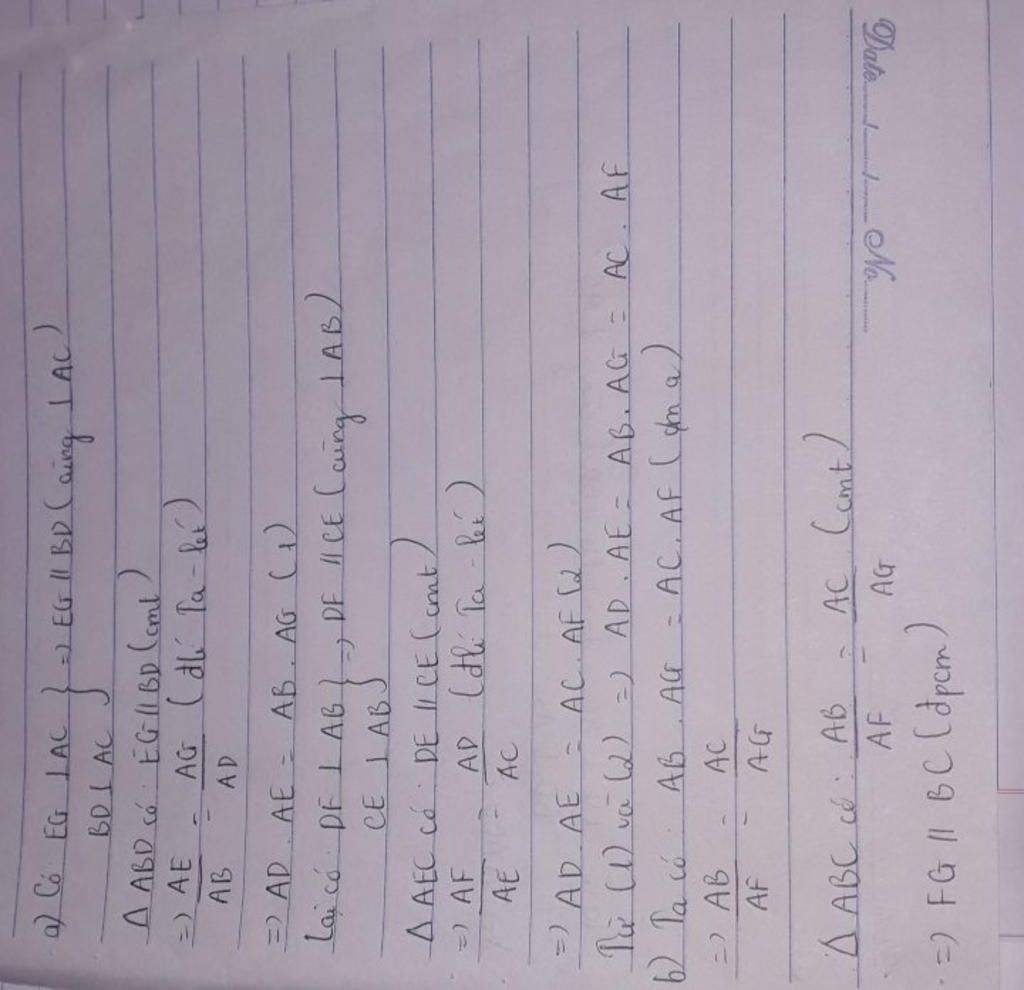 a) Có EG ⊥ AC } => EG // BD (cùng ⊥ AC)
BD ⊥ AC
Δ ABD có: EG // BD (cmt)
=> AE/AB = AG/AD (đlí Ta-lét)
=> AD . AE = AB . AG (1)
Lại có: DF ⊥ AB } => DF // CE (cùng ⊥ AB)
CE ⊥ AB
Δ AEC có: DE // CE (cmt)
=> AF/AE = AD/AC (đlí Ta-lét)
=> AD . AE = AC . AF (2)
Từ (1) và (2) => AD . AE = AB . AG = AC . AF
b) Ta có: AB . AG = AC . AF (cm a)
=> AB/AF = AC/AG
Δ ABC có: AB/AF = AC/AG (cmt)
=> FG // BC (đpcm)
Date / / No